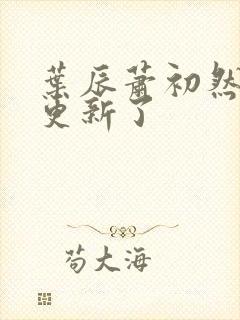 葉辰蕭初然
更新了
苟大海